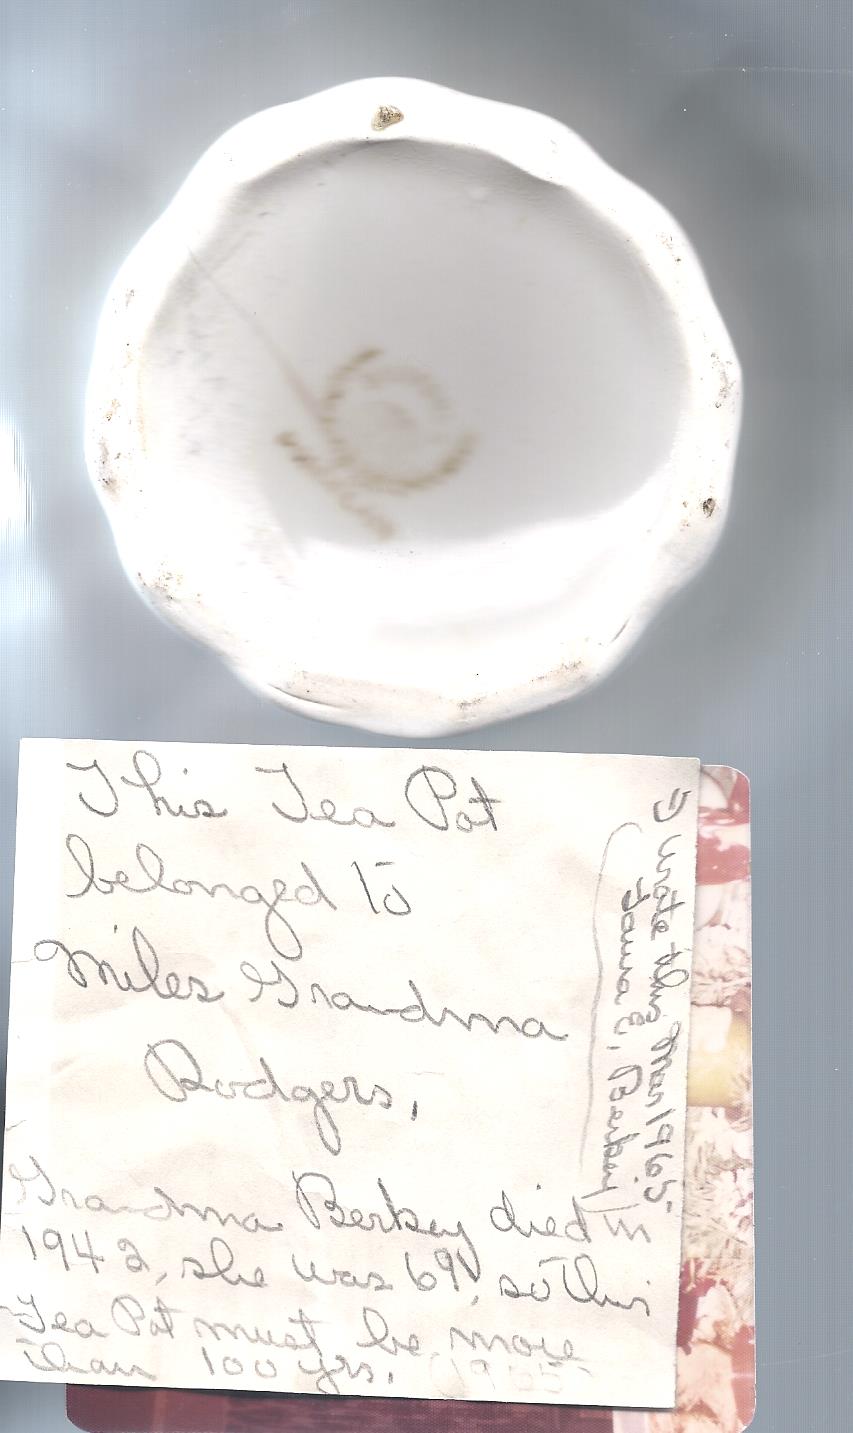 This Tea Pot
belonged to
Miles Grandma
Rodgers,
Grandma Berkey died in
1942, she was 69, so this
Tea Pot must be more
than 100 yrs. (1965
I wrote this Mar 1965
Laura E, Berkey